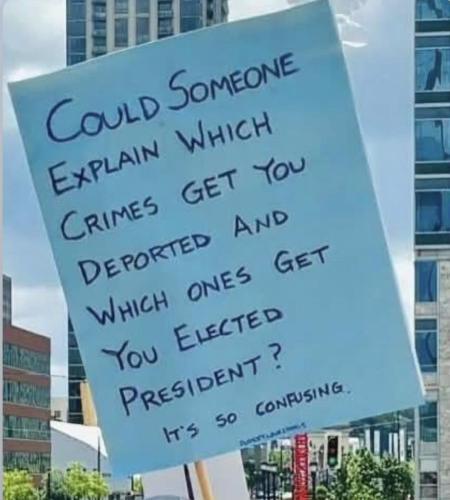 COULD SOMEONE
EXPLAIN WHICH
CRIMES GET YOU
DEPORTED AND
WHICH ONES GET
YOU ELECTED
PRESIDENT?
IT'S SO CONFUSING.